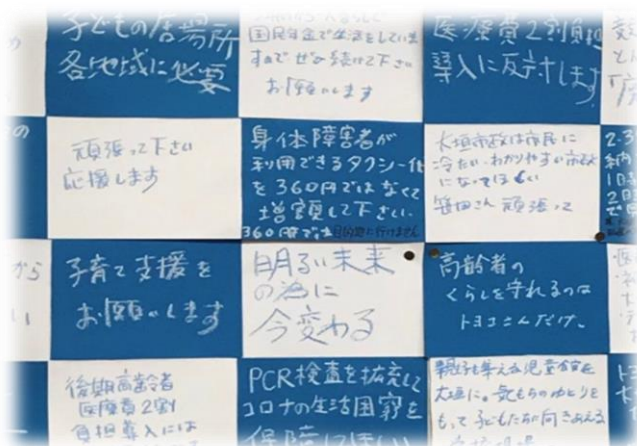 子どもの居場所
各地域に必要
国民年金で生活をしていま
すのでぜひ続けて下さい
お願いします
医療費2割負担
導入に反対します
頑張って下さい
応援します
身体障害者が
利用できるタクシー代
を360円ではなくて
増額して下さい.
360円では目的地に行けません
大垣市政は市民に
冷たい.わかりやすい市政
になってほしい
笹田さん 頑張って
子育て支援を
お願いします
明るい未来
の為に
今変わる
高齢者の
くらしを守れるのは
トヨコさんだけ.
後期高齢者
医療費2割
負担導入には
PCR検査を拡充して
コロナの生活困窮を
保障してほしい
大垣に。気もちのゆとりを
もって子どもたちに向きあえる